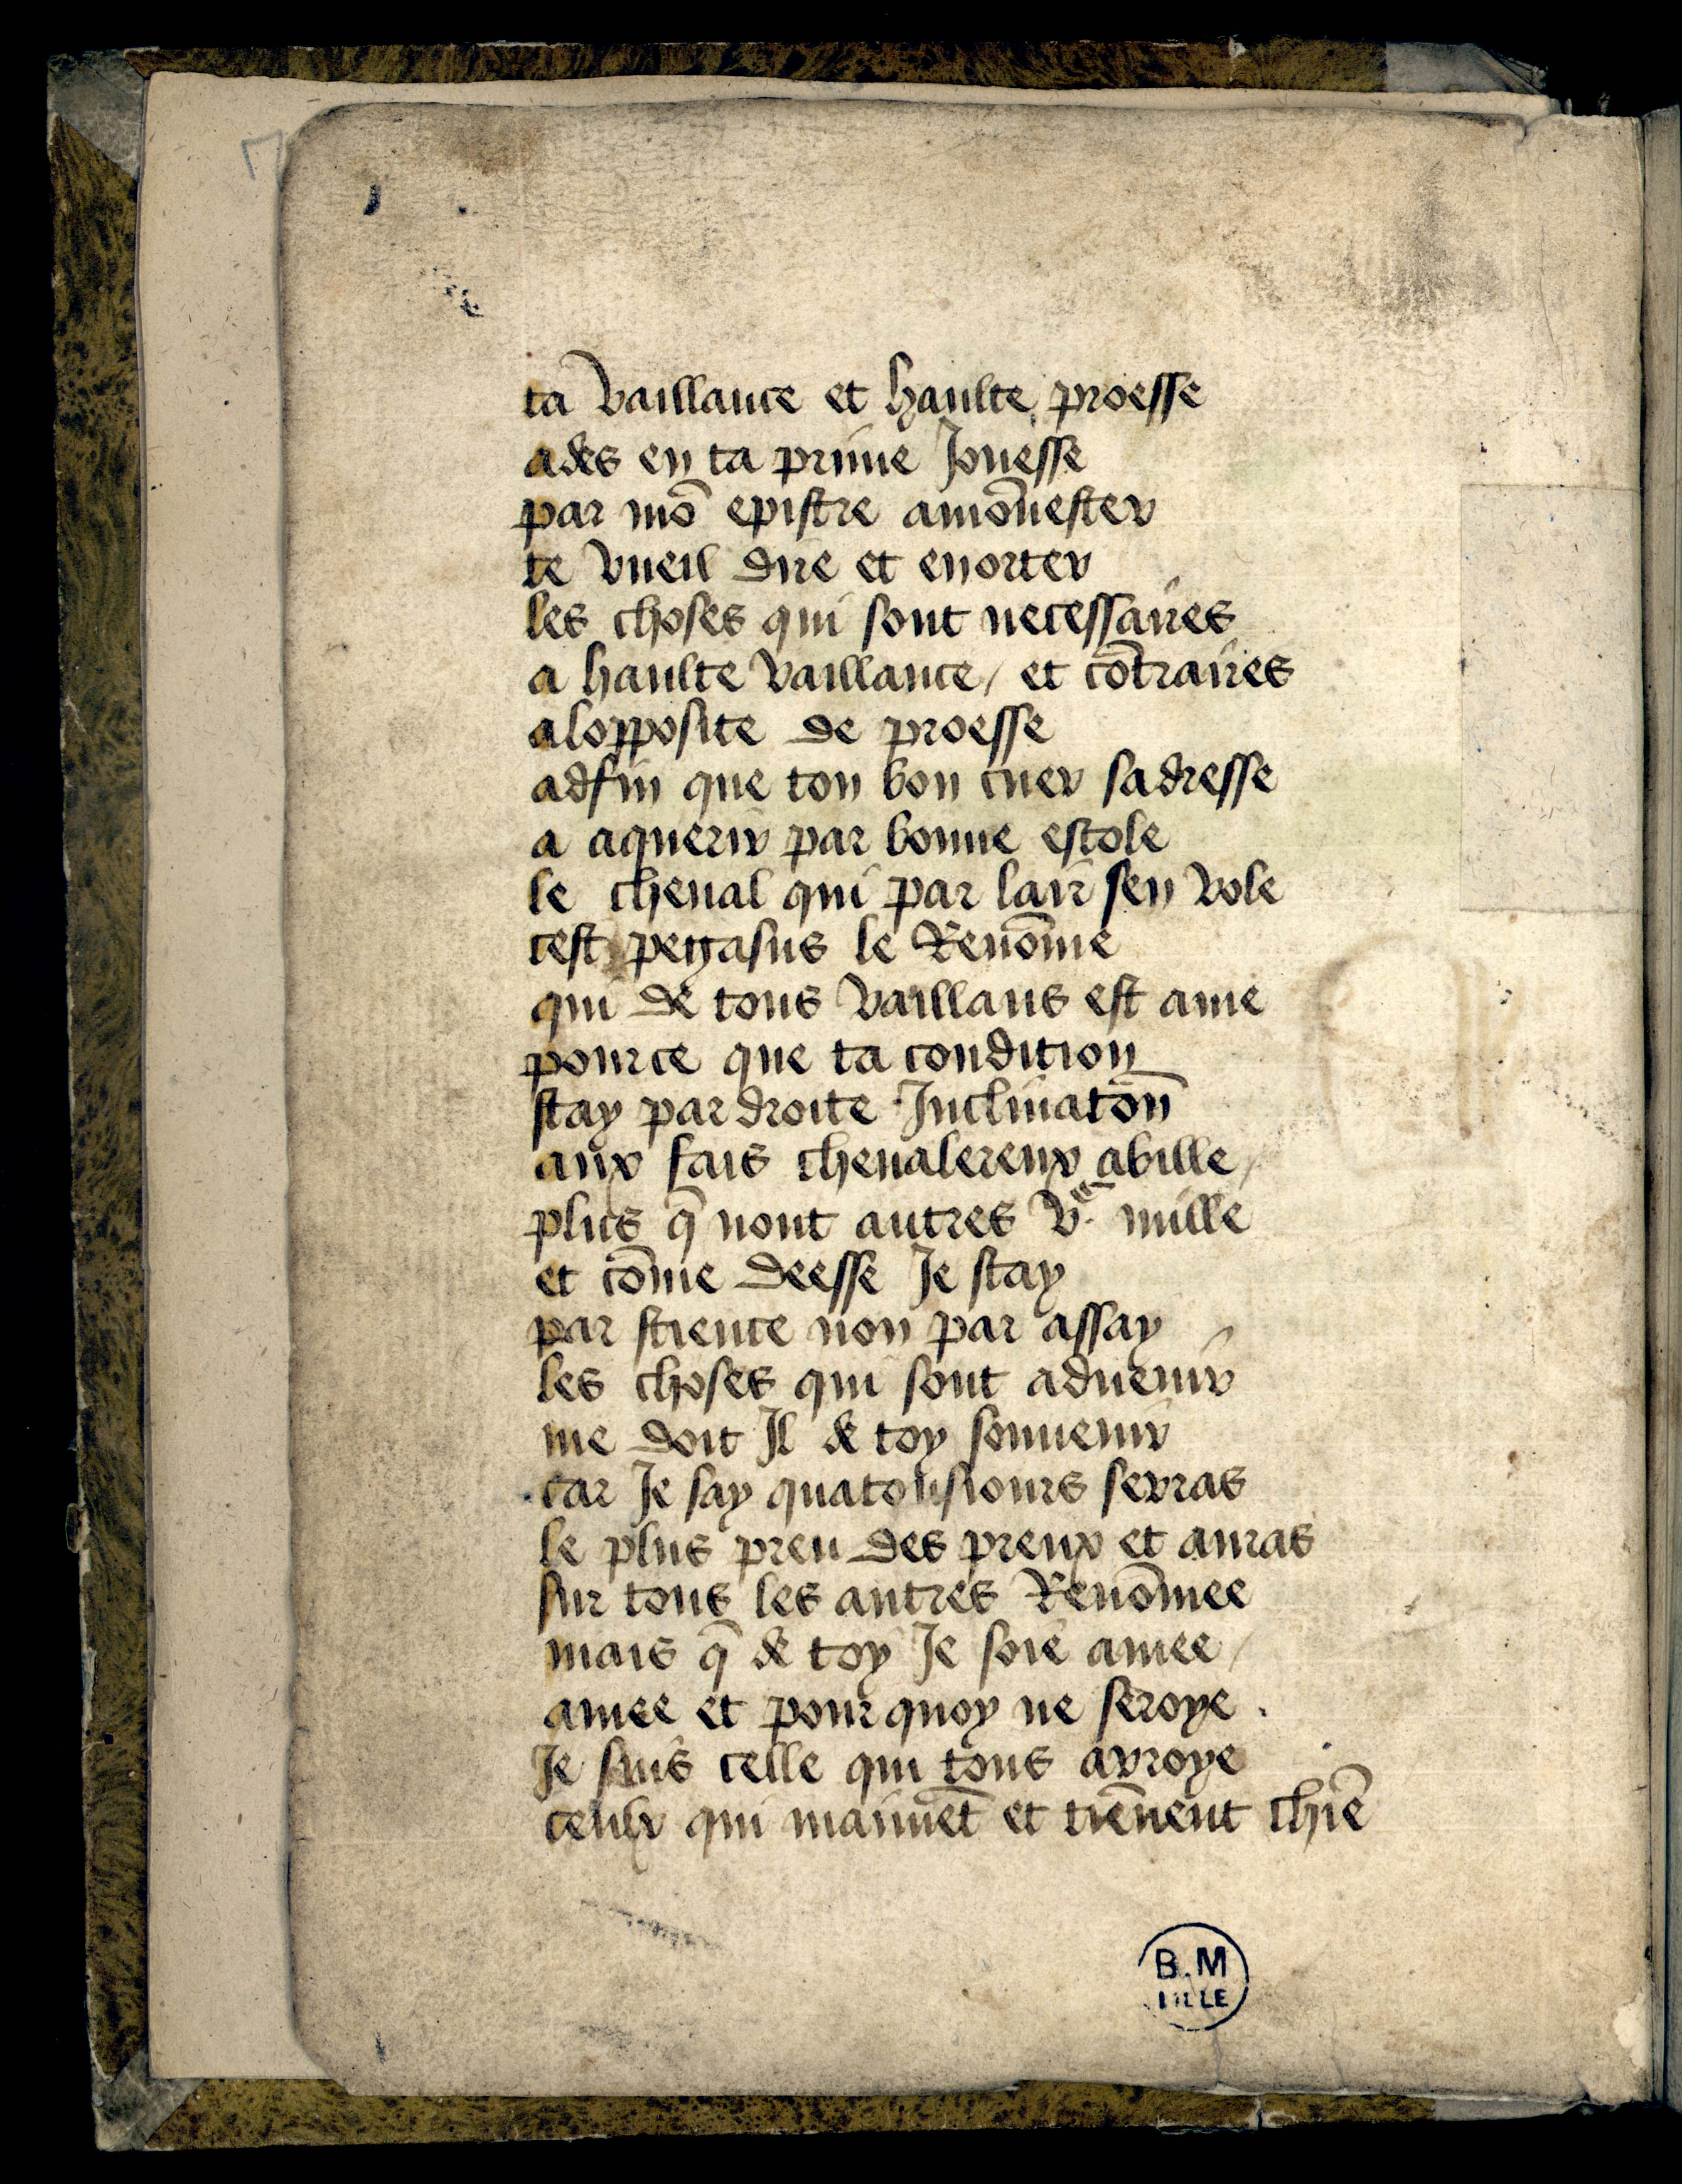 ta vaillance et haulte proesse
ades en ta prime Jonesse
par mō epistre amōnester
te vueil dire et enorter
les choses qui sont necessaires
a haulte vaillance / et cōtraires
a lopposite de proesse
adfin que ton bon cuer sadresse
a aquerir par bonne escole
le cheual qui par lair sen vole
cest pegasus le Renōme
qui de tous vaillans est ame
pource que ta condition
scay par droite Inclinatōn
aux fais cheualereux abille /
plus q̄ nont autres v.ᶜ mille
et cōme deesse Je scay
par science non par assay
les choses qui sont aduenir
me doit Il de toy souuenir
car Je say qua tousiours serras
le plus preu des preux et auras
sur tous les autres Renōmee
mais q̄ de toy Je soie amee /
amee et pour quoy ne seroye .
Je suis celle qui tous arroye
ceulx qui maimēt et tiēnent chiē
B.M
LILLE